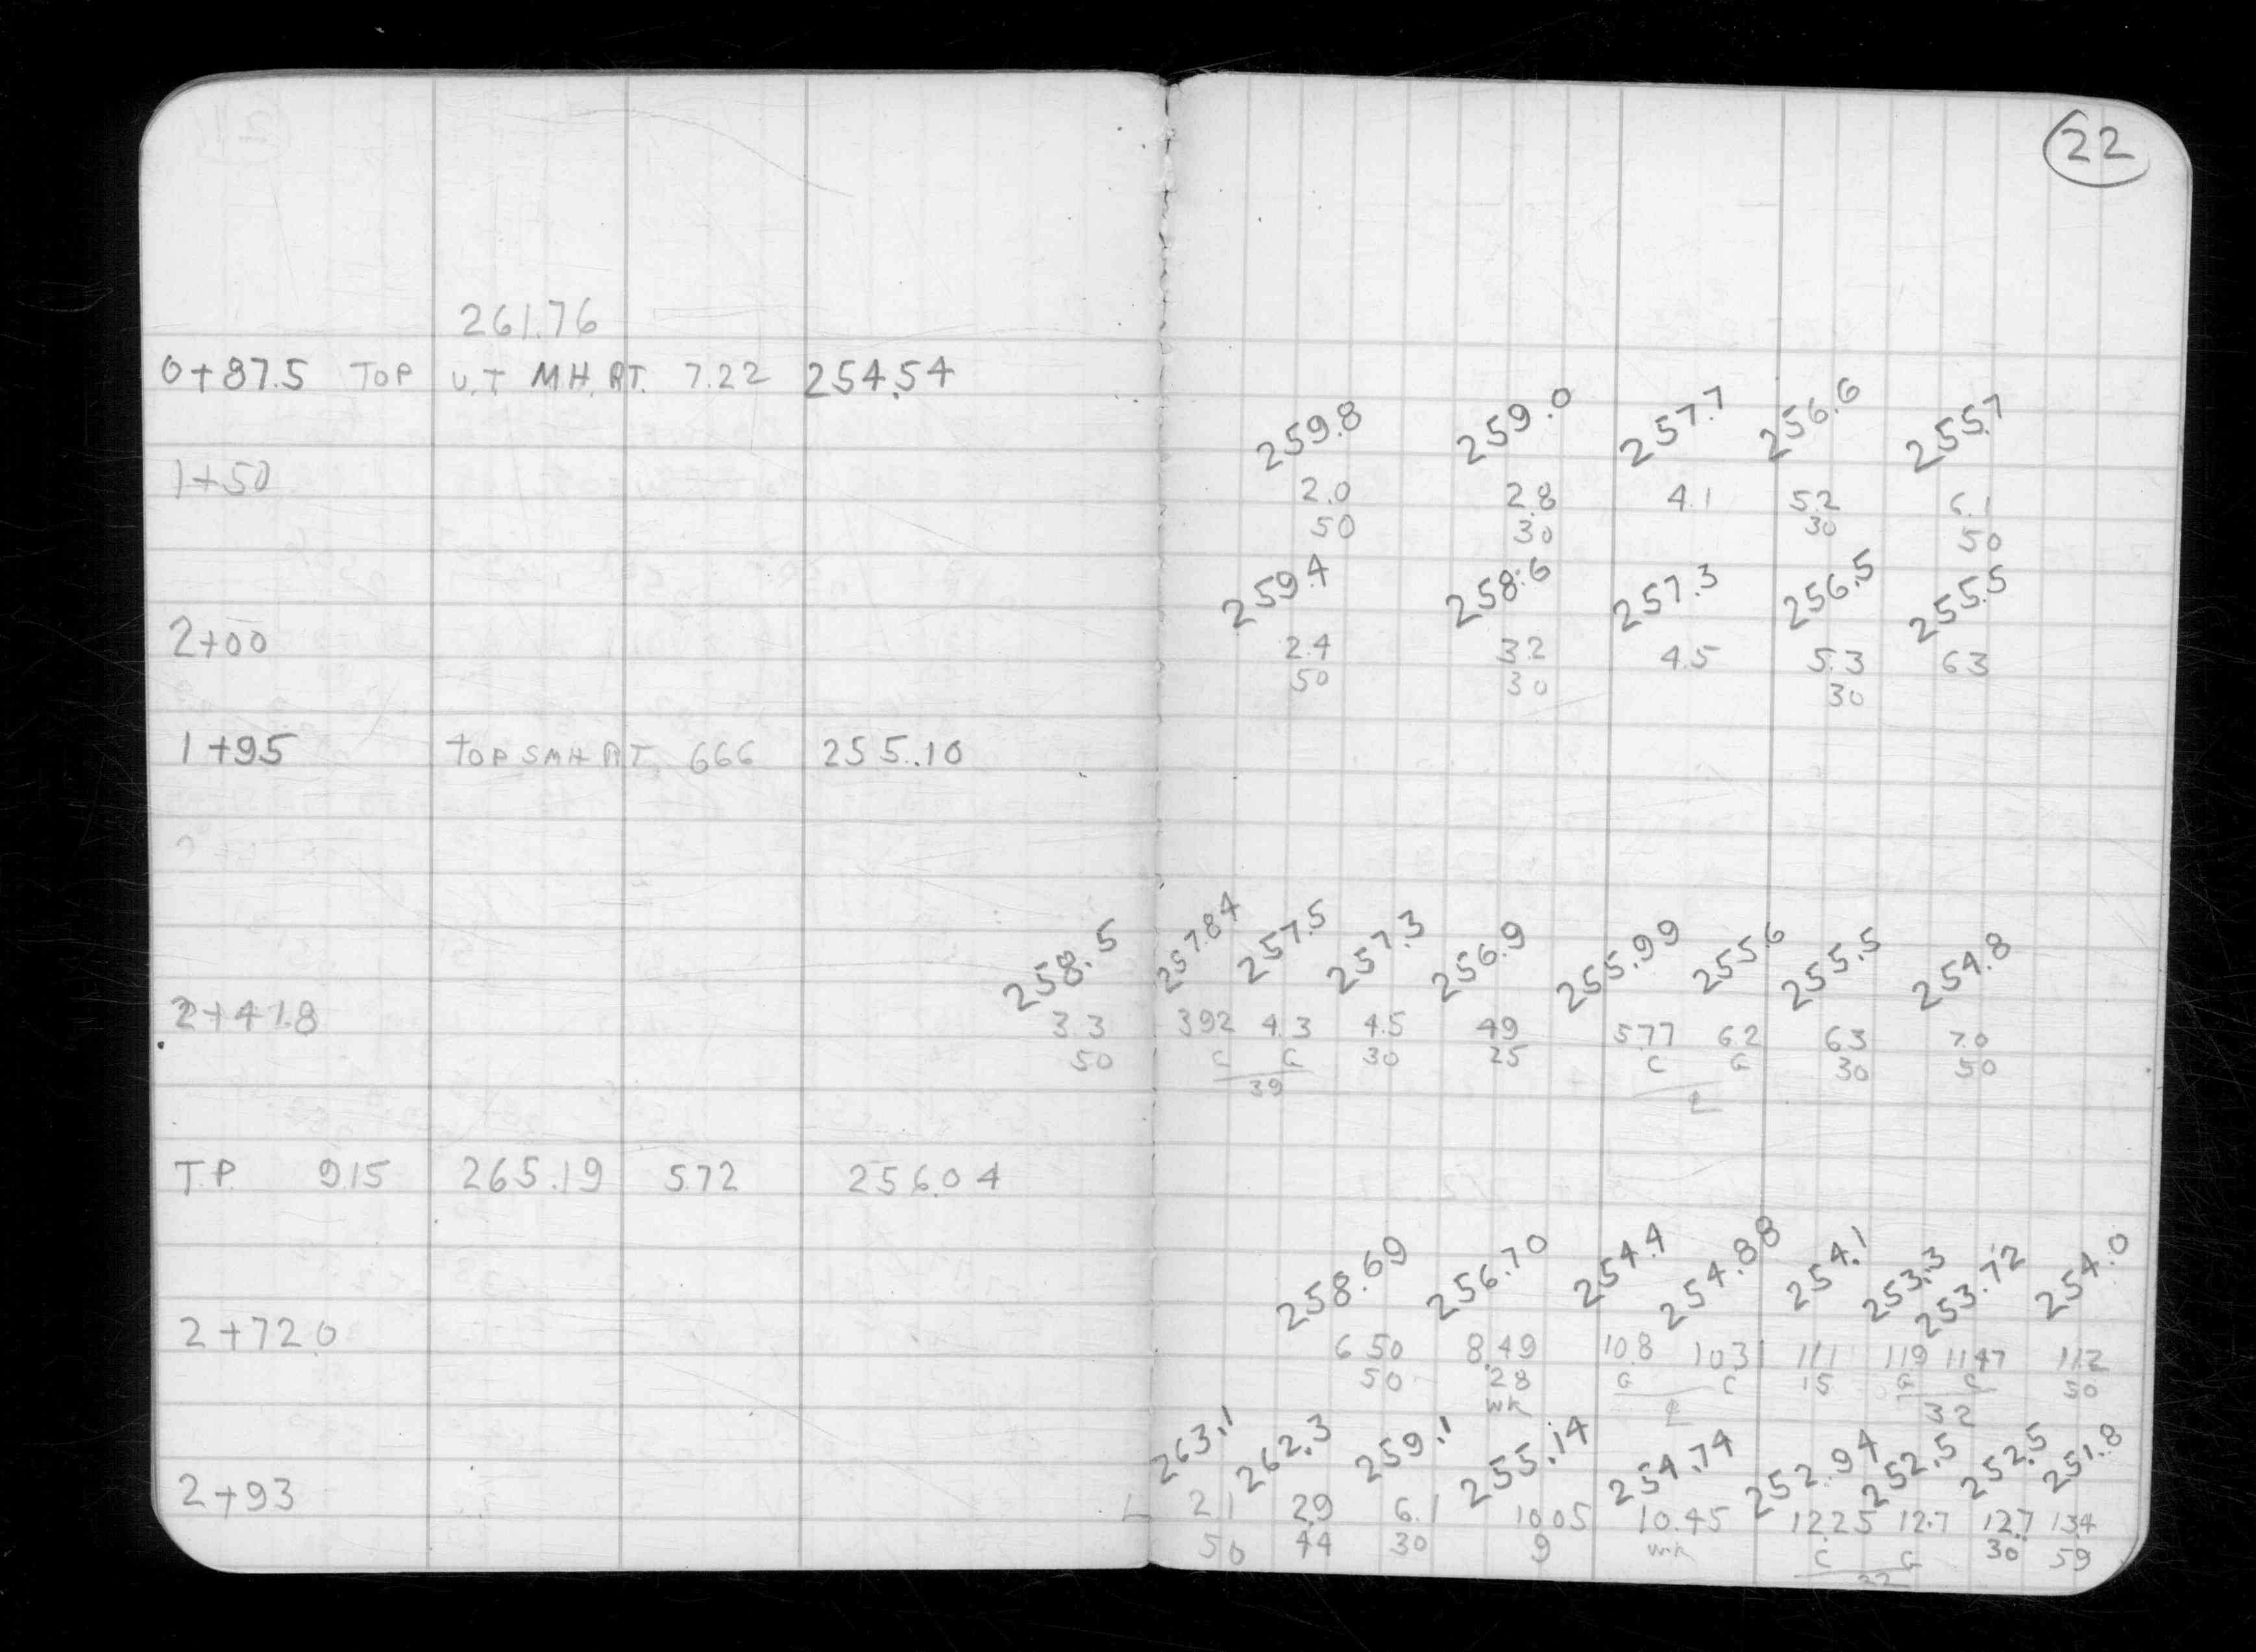 22
261.76
0+87.5 TOP U.T MH. RT. 7.22 254.54
259.8 259.0 257.7 256.6 255.7
1+50 2.0 2.8 4.1 5.2 6.1
50 30 30 50
259.4 258.6 257.3 256.5 255.5
2+00 2.4 3.2 4.5 5.3 63
50 30 30
1+95 TOP SMH RT. 666 255.10
258.5 257.84 257.5 257.3 256.9 255.99 255.6 255.5 254.8
2+47.8 3.3 392 4.3 4.5 49 5.77 6.2 63 7.0
50 C G 30 25 C G 30 50
39 ℄
T.P. 915 265.19 572 256.04
258.69 256.70 254.4 254.88 254.1 253.3 253.72 254.0
2+720 650 8.49 10.8 1031 111 119 1147 11.2
50 28 G C 15 G C 50
WK ℄ 32
263.1 262.3 259.1 255.14 254.74 252.94 252.5 252.5 251.8
2+93 L 21 29 6.1 1005 10.45 12.25 12.7 12.7 134
50 44 30 9 WK C G 30 59